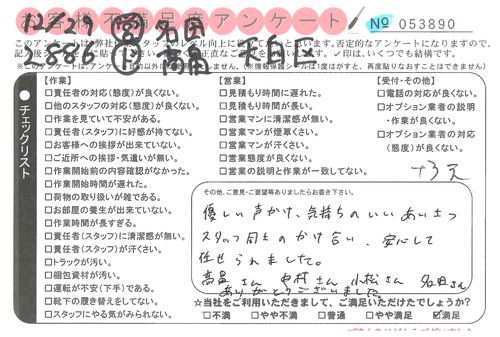 お客様不満足度アンケート
№ 053890
12/29
2886
このアンケートは弊社
※このアンケートは
再度貼りなおすことはできません)
チェックリスト
【作業】
□責任者の対応(態度)が良くない。
□他のスタッフの対応(態度)が良くない。
□作業を見ていて不安がある。
□責任者(スタッフ)に好感が持てない。
□お客様への挨拶が出来ていない。
□ご近所への挨拶・気遣いが無い。
□作業開始前の内容確認がなかった。
□作業開始時間が遅れた。
□荷物の取り扱いが雑である。
□お部屋の養生が出来ていない。
□作業時間が長すぎる。
□責任者(スタッフ)に清潔感が無い。
□責任者(スタッフ)が汗くさい。
□トラックが汚い。
□梱包資材が汚い。
□運転が不安(下手)である。
□靴下の履き替えをしてない。
□スタッフにやる気がみられない。
【営業】
□見積もり時間に遅れた。
□見積もり時間が長い。
□営業マンに清潔感が無い。
□営業マンが煙草くさい。
□営業マンが汗くさい。
□営業態度が良くない。
□営業の説明と作業が一致してない。
【受付・その他】
□電話の対応が良くない。
□オプション業者の説明
・作業が良くない。
□オプション業者の対応
(態度)が良くない。
その他、ご意見・ご要望等ありましたらお書き下さい。
優しい声かけ、気持ちのいいあいさつ
スタッフ同士のかけ合い、安心して
任せられました。
高畠さん 中村さん 小松さん 名田さん
ありがとうございました
☆当社をご利用いただきまして、ご満足いただけたでしょうか?
□不満 □やや不満 □普通 □やや満足 ☑満足